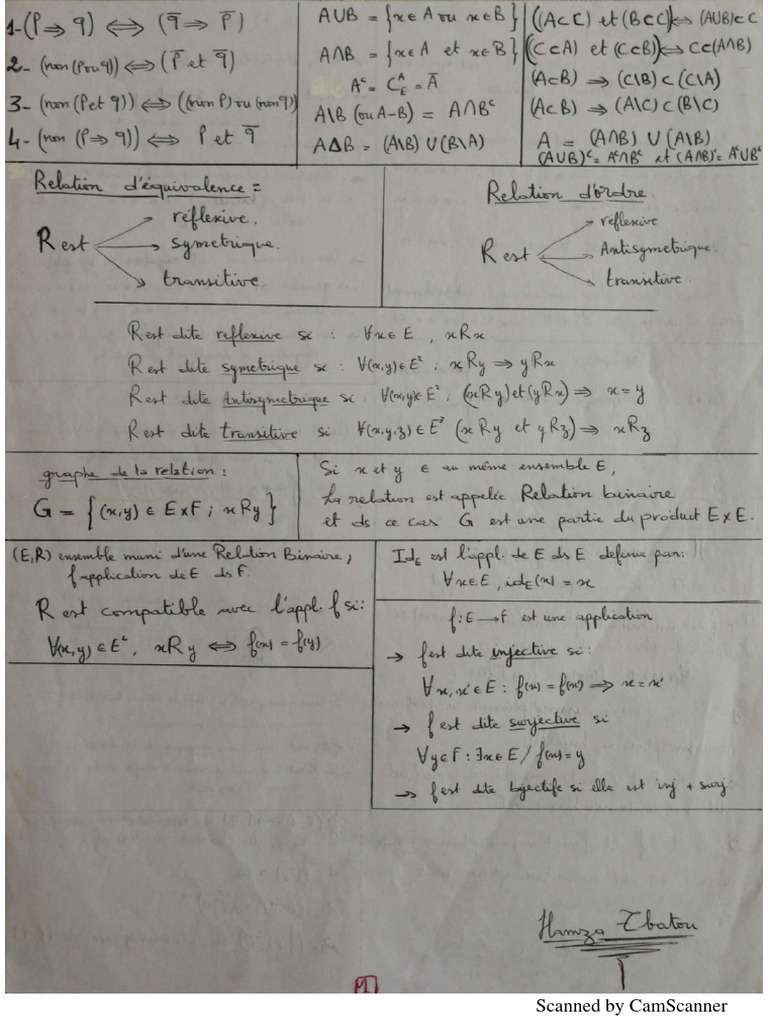 1-(P ⇒ q) ⟺ (q̅ ⇒ P̅)
2- (non (P ou q)) ⟺ (P̅ et q̅)
3- (non (P et q)) ⟺ ((non P) ou (non q))
4- (non (P ⇒ q)) ⟺ P et q̅
A∪B = {x∈A ou x∈B}
A∩B = {x∈A et x∈B}
Aᶜ = C_E^A = A̅
A\B (ou A-B) = A∩Bᶜ
AΔB = (A\B) ∪ (B\A)
((A⊂C) et (B⊂C)) ⟺ (A∪B)⊂C
((C⊂A) et (C⊂B)) ⟺ C⊂(A∩B)
(A⊂B) ⇒ (C\B) ⊂ (C\A)
(A⊂B) ⇒ (A\C) ⊂ (B\C)
A = (A∩B) ∪ (A\B)
(A∪B)ᶜ = Aᶜ∩Bᶜ et (A∩B)ᶜ = Aᶜ∪Bᶜ
Relation d'équivalence =
R est
réflexive.
symetrique.
transitive.
Relation d'ordre
R est
réflexive
Antisymetrique.
transitive.
R est dite reflexive si : ∀x∈E , xRx
R est dite symetrique si : ∀(x,y)∈E² ; xRy ⇒ yRx
R est dite Antisymetrique si : ∀(x,y)∈E² ; (xRy) et (yRx) ⇒ x=y
R est dite transitive si ∀(x,y,z)∈E³ (xRy et yRz) ⇒ xRz
graphe de la relation :
G = {(x,y) ∈ E×F ; xRy}
Si x et y ∈ au même ensemble E,
La relation est appelée Relation binaire
et ds ce cas G est une partie du product E×E.
(E,R) ensemble muni d'une Relation Binaire ;
f application de E ds F.
R est compatible avec l'appl. f si :
∀(x,y) ∈ E², xRy ⟺ f(x) = f(y)
Id_E est l'appl. de E ds E definue par:
∀x∈E, id_E(x) = x
f : E → F est une application
→ f est dite injective si :
∀x,x'∈E : f(x) = f(x') ⟹ x = x'
→ f est dite surjective si
∀y∈F : ∃x∈E / f(x)=y
→ f est dite bjectife si elle est inj + surj
Hamza Zbatou
1
Scanned by CamScanner